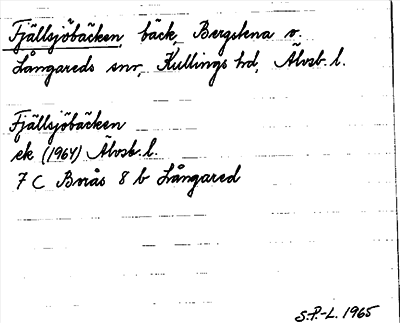 Fjällsjöbäcken, bäck, Bergstena o.
Långareds snr, Kullings hd, Älvsb. l.
Fjällsjöbäcken
ek (1964) Älvsb. l.
7 C Borås 8 b Långared
S.P.-L. 1965